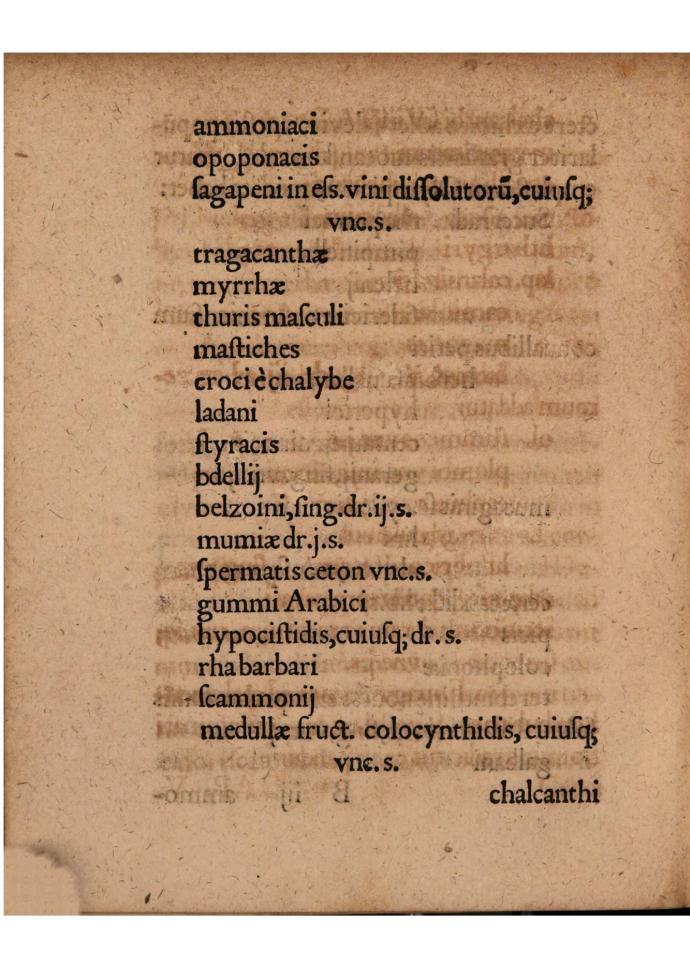 ammoniaci
opoponacis
ſagapeni in eſs. vini diſſolutorũ, cuiuſq;
vnc. s.
tragacanthæ
myrrhæ
thuris maſculi
maſtiches
croci è chalybe
ladani
ſtyracis
bdellij
belzoini, ſing. dr. ij. s.
mumiæ dr. j. s.
ſpermatis ceton vnc. s.
gummi Arabici
hypociſtidis, cuiuſq; dr. s.
rhabarbari
ſcammonij
medullæ fruct. colocynthidis, cuiuſq;
vnc. s.
chalcanthi